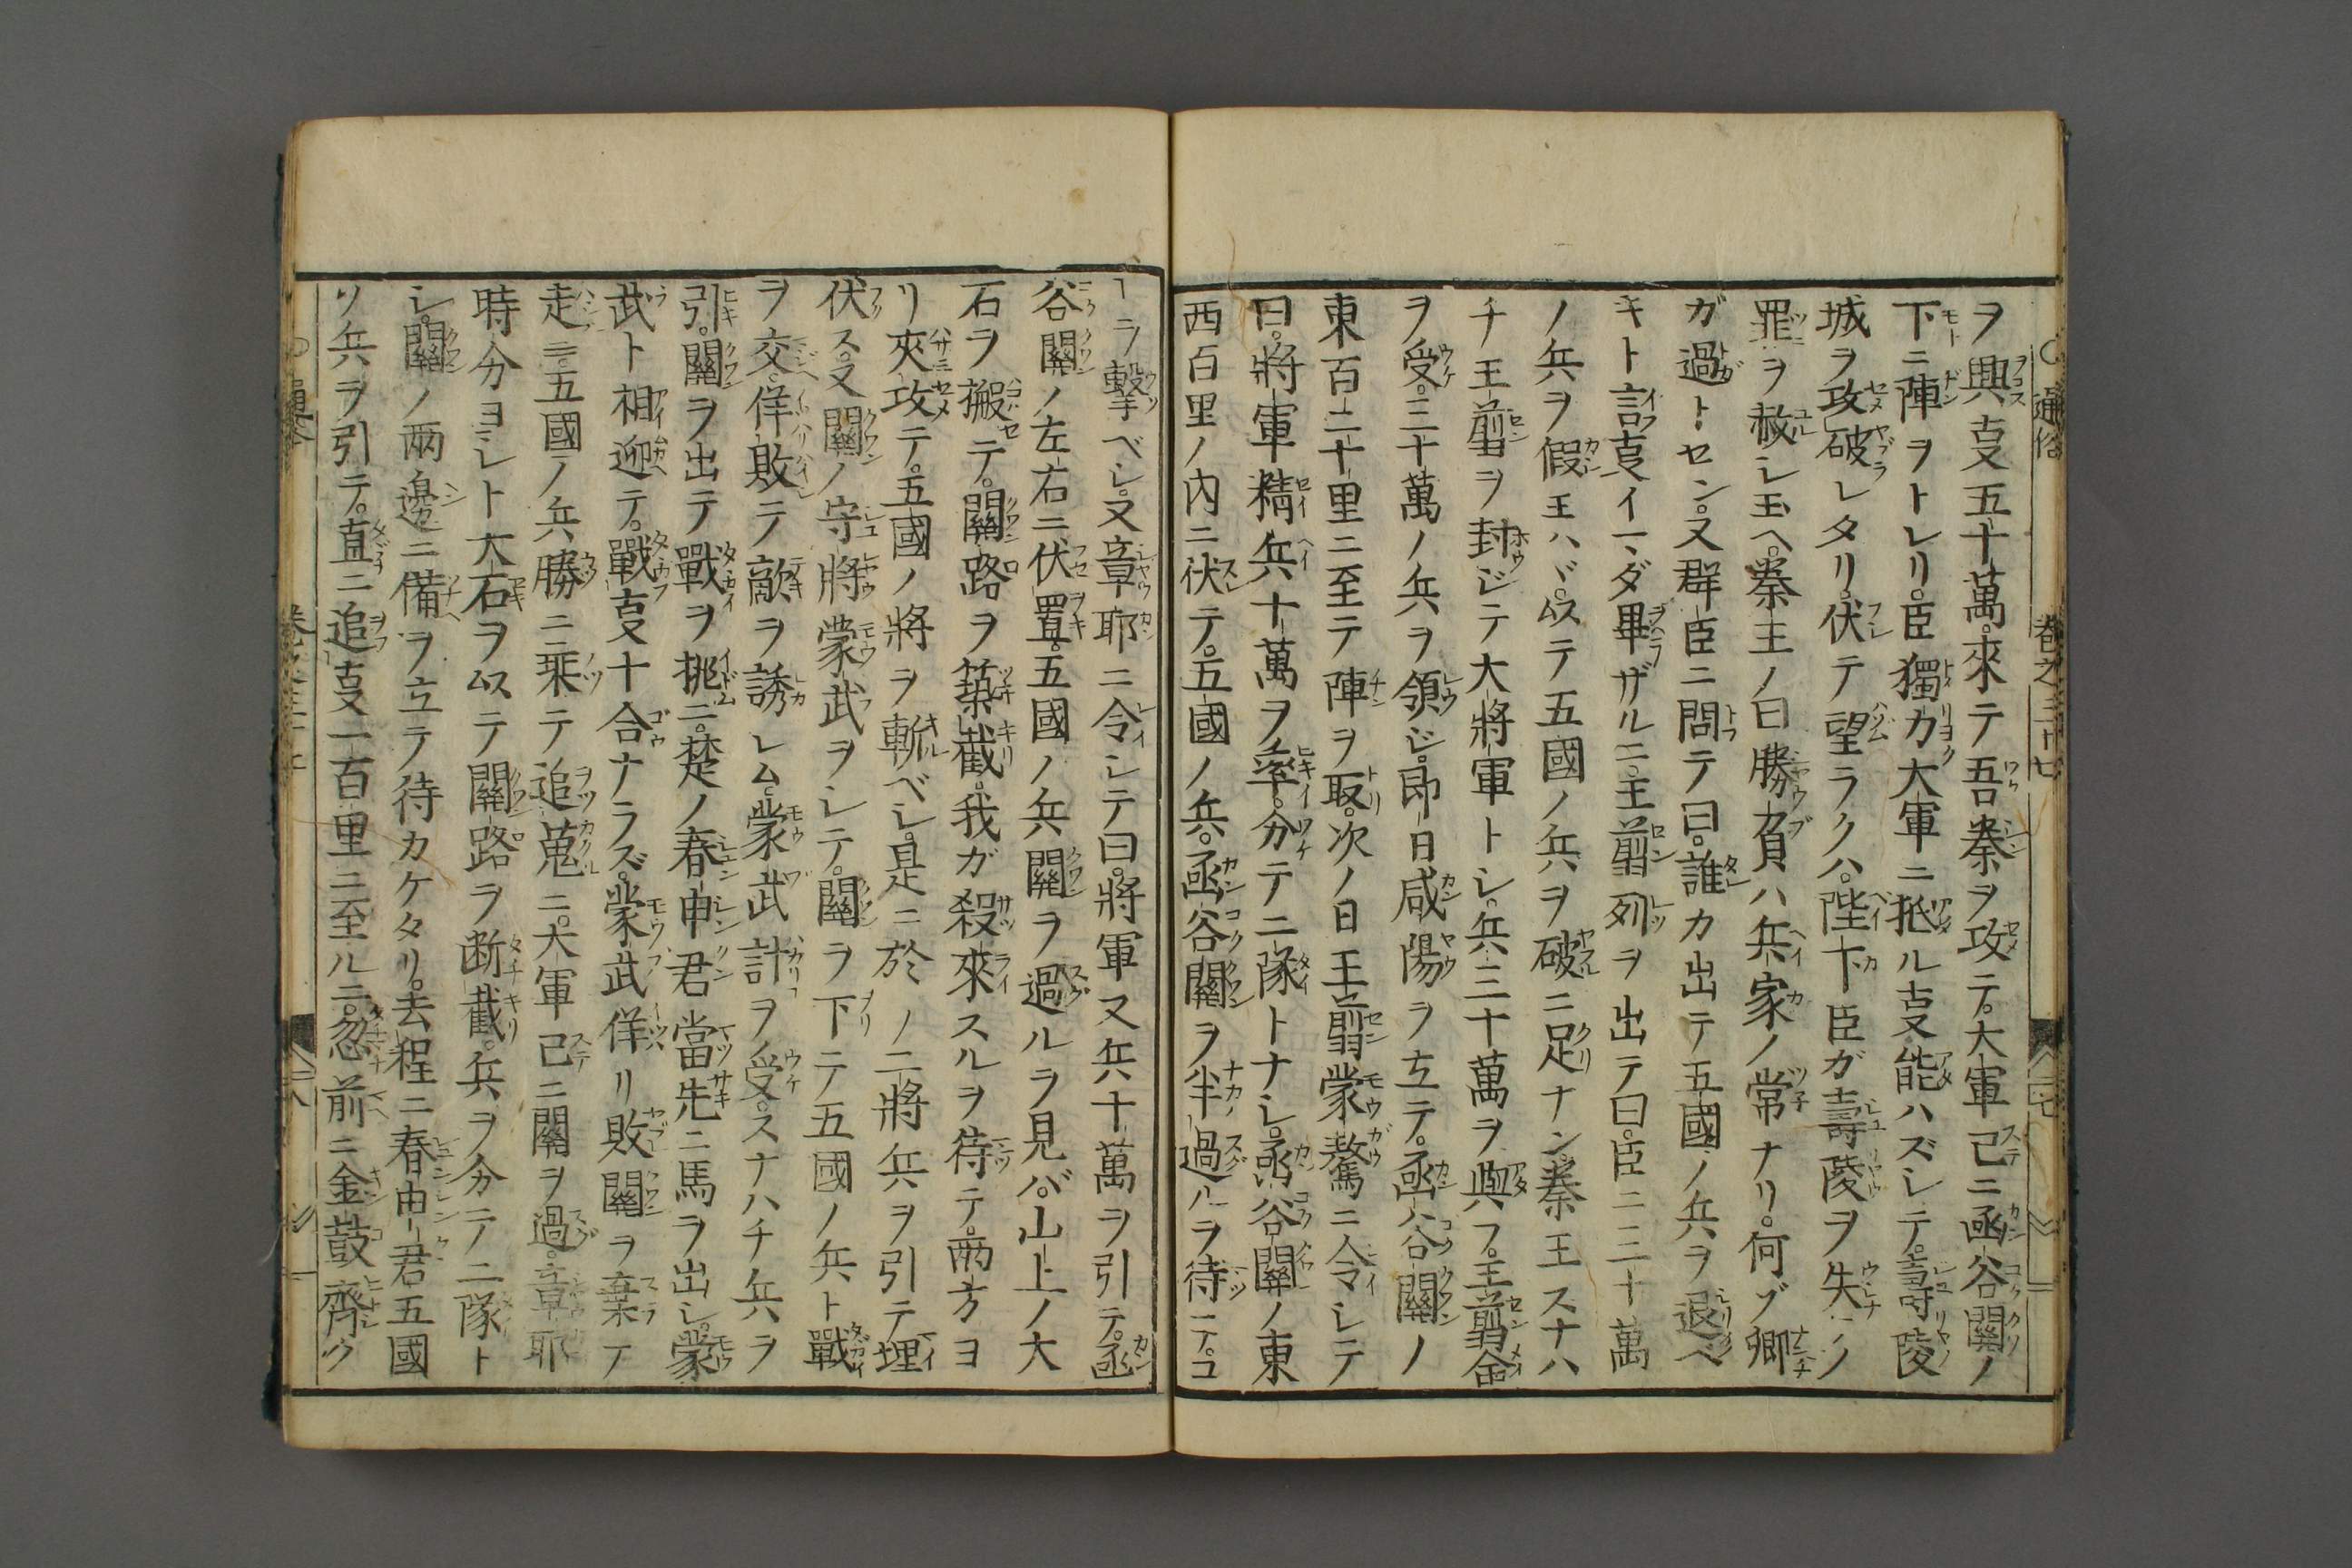 ヲ興叓五十萬來テ吾秦ヲ攻テ。大軍已ニ函谷關ノ
下ニ陣ヲトレリ。臣獨力大軍ニ抵ル叓能ハズレテ。壽陵
城ヲ攻破レタリ。伏テ望ラクハ。陛下臣ガ壽陵ヲ失ノ
罪ヲ赦レ玉ヘ。秦王ノ曰勝負ハ兵家ノ常ナリ。何ゾ卿
ガ過トセン。又群臣ニ問テ曰。誰カ出テ五國ノ兵ヲ退ベ
キト言叓イマダ畢ザルニ。王翦列ヲ出テ曰。臣ニ三十萬
ノ兵ヲ假玉ハヾ。以テ五國ノ兵ヲ破ニ足ナン。秦王スナハ
チ王翦ヲ封ジテ大將軍トレ。兵三十萬ヲ與フ。王翦命
ヲ受。三十萬ノ兵ヲ領ジ。即日咸陽ヲ立テ。函谷關ノ
東百二十里ニ至テ陣ヲ取。次ノ日王翦蒙驁ニ令レテ
曰。將軍精兵十萬ヲ率。分テ二隊トナレ。函谷關ノ東
西百里ノ内ニ伏テ。五國ノ兵。函谷關ヲ半過ルヲ待テ。コ
レヲ擊ベレ。又章耶ニ令レテ曰。將軍又兵十萬ヲ引テ。函
谷關ノ左右ニ伏置。五國ノ兵關ヲ過ルヲ見バ。山上ノ大
石ヲ搬テ。關路ヲ築截。我ガ殺來スルヲ待テ。兩方ヨ
リ夾攻テ。五國ノ將ヲ斬ベレ。是ニ於ノ二將兵ヲ引テ埋
伏ス。又關ノ守將蒙武ヲレテ。關ヲ下テ五國ノ兵ト戰
ヲ交。佯敗テ敵ヲ誘レム。蒙武計ヲ受。スナハチ兵ヲ
引。關ヲ出テ戰ヲ挑ニ。楚ノ春申君當先ニ馬ヲ出レ。蒙
武ト相迎テ。戰叓十合ナラズ。蒙武佯リ敗關ヲ棄テ
走ニ。五國ノ兵勝ニ乗テ追蒐ニ。大軍已ニ關ヲ過。章耶
時分ヨレト大石ヲ以テ關路ヲ断截。兵ヲ分テ二隊ト
レ。關ノ兩邊ニ備ヲ立テ待カケタリ。去程ニ春申君五國
ノ兵ヲ引テ。直ニ追叓一百里ニ至ルニ。忽前ニ金鼓齊ク
通俗
巻之三十七